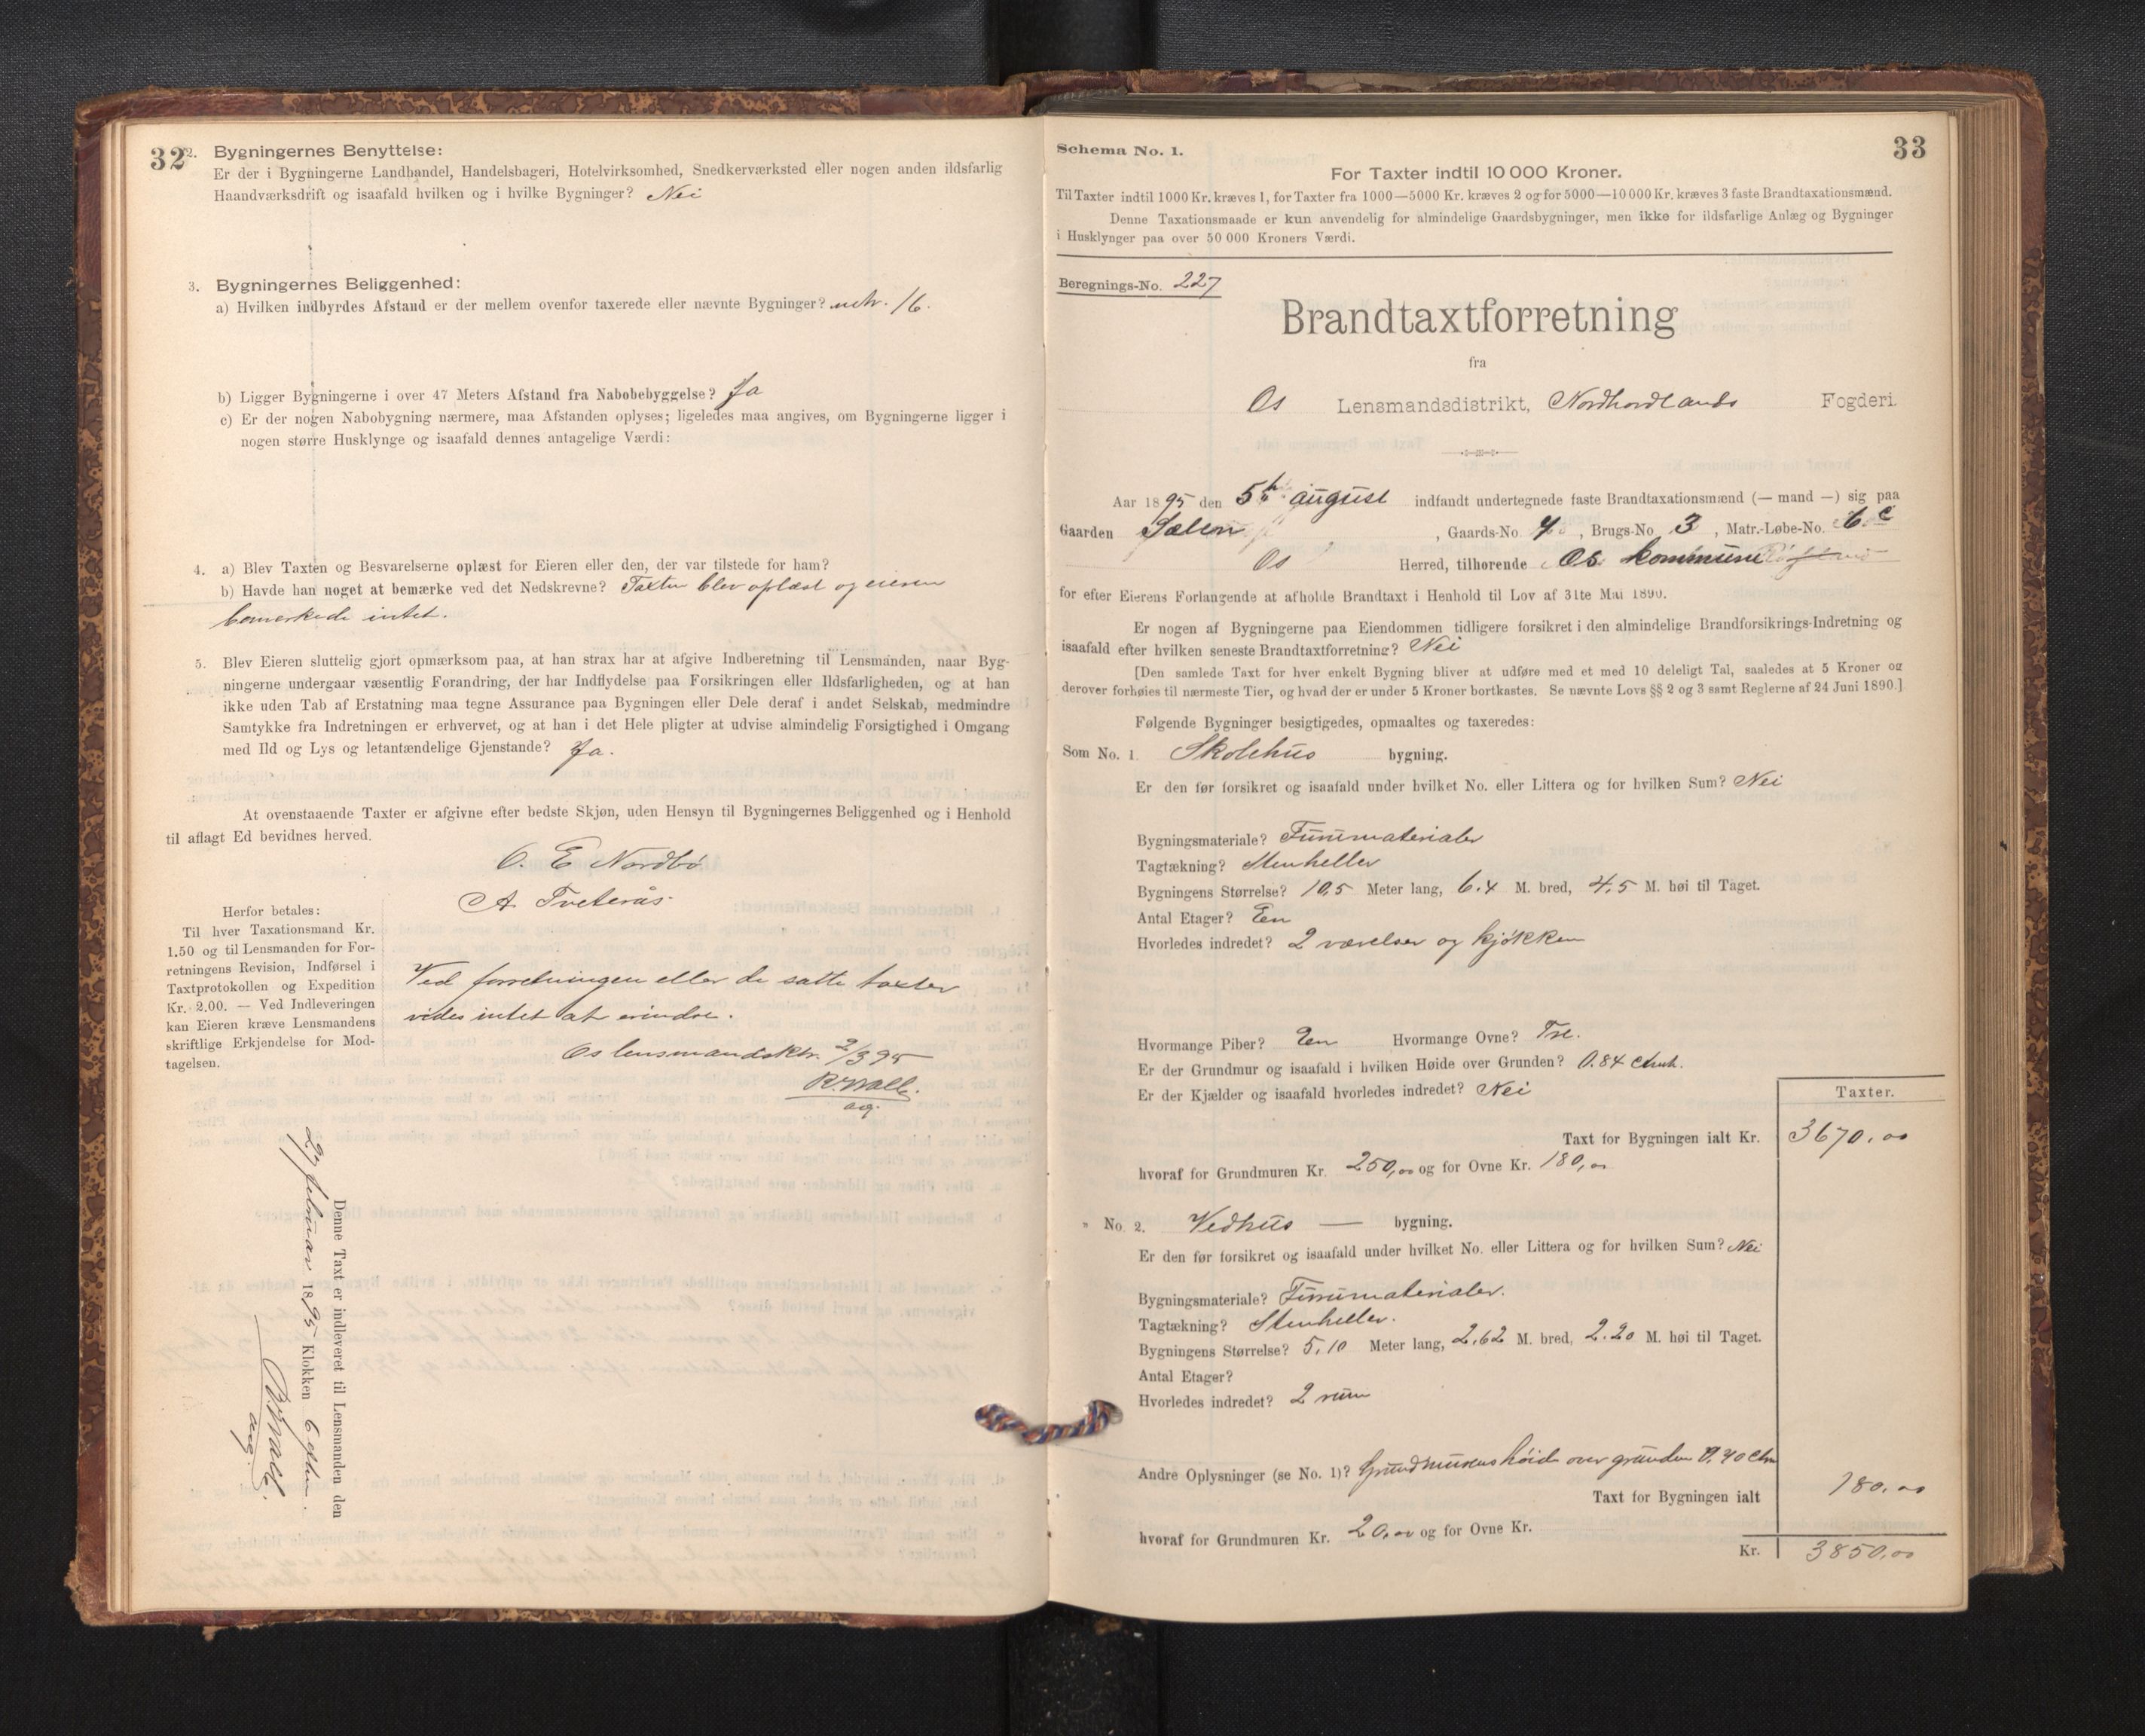 32
2. Bygningernes Benyttelse:
Er der i Bygningerne Landhandel, Handelsbageri, Hotelvirksomhed, Snedkerværksted eller nogen anden ildsfarlig
Haandværksdrift og isaafald hvilken og i hvilke Bygninger? Nei
3. Bygningernes Beliggenhed:
a) Hvilken indbyrdes Afstand er der mellem ovenfor taxerede eller nævnte Bygninger? mtr. 16.
b) Ligger Bygningerne i over 47 Meters Afstand fra Nabobebyggelse? Ja
c) Er der nogen Nabobygning nærmere, maa Afstanden oplyses; ligeledes maa angives, om Bygningerne ligger i
nogen større Husklynge og isaafald dennes antagelige Værdi:
4. a) Blev Taxten og Besvarelserne oplæst for Eieren eller den, der var tilstede for ham?
b) Havde han noget at bemærke ved det Nedskrevne? Taxten blev oplæst og eieren
bemærkede intet.
5. Blev Eieren sluttelig gjort opmærksom paa, at han strax har at afgive Indberetning til Lensmanden, naar Byg-
ningerne undergaar væsentlig Forandring, der har Indflydelse paa Forsikringen eller Ildsfarligheden, og at han
ikke uden Tab af Erstatning maa tegne Assurance paa Bygningen eller Dele deraf i andet Selskab, medmindre
Samtykke fra Indretningen er erhvervet, og at han i det Hele pligter at udvise almindelig Forsigtighed i Omgang
med Ild og Lys og letantændelige Gjenstande? Ja.
At ovenstaaende Taxter er afgivne efter bedste Skjøn, uden Hensyn til Bygningernes Beliggenhed og i Henhold
til aflagt Ed bevidnes herved.
O. E Nordbö
A. Tveterås
Herfor betales:
Til hver Taxationsmand Kr.
1.50 og til Lensmanden for For-
retningens Revision, Indførsel i
Taxtprotokollen og Expedition
Kr. 2.00. — Ved Indleveringen
kan Eieren kræve Lensmandens
skriftlige Erkjendelse for Mod-
tagelsen.
Ved forretningen eller de satte taxter
vides intet at erindre.
Os lensmandsktr. 2/3 95
ag.
Denne Taxt er indleveret til Lensmanden den
27 februar 1895 Klokken 6 eftm.
ag.
33
Schema No. 1.
For Taxter indtil 10 000 Kroner.
Til Taxter indtil 1000 Kr. kræves 1, for Taxter fra 1000—5000 Kr. kræves 2 og for 5000—10 000 Kr. kræves 3 faste Brandtaxationsmænd.
Denne Taxationsmaade er kun anvendelig for almindelige Gaardsbygninger, men ikke for ildsfarlige Anlæg og Bygninger
i Husklynger paa over 50 000 Kroners Værdi.
Beregnings-No. 227
Brandtaxtforretning
fra
Os Lensmandsdistrikt, Nordhordlands Fogderi.
Aar 1895 den 5te august indfandt undertegnede faste Brandtaxationsmænd (— mand —) sig paa
Gaarden Sælen, Gaards-No. 4, Brugs-No 3, Matr.-Løbe-No. 6 c
Os Herred, tilhørende Os kommune
for efter Eierens Forlangende at afholde Brandtaxt i Henhold til Lov af 31te Mai 1890.
Er nogen af Bygningerne paa Eiendommen tidligere forsikret i den almindelige Brandforsikrings-Indretning og
isaafald efter hvilken seneste Brandtaxtforretning? Nei
[Den samlede Taxt for hver enkelt Bygning bliver at udføre med et med 10 deleligt Tal, saaledes at 5 Kroner og
derover forhøies til nærmeste Tier, og hvad der er under 5 Kroner bortkastes. Se nævnte Lovs §§ 2 og 3 samt Reglerne af 24 Juni 1890.]
Følgende Bygninger besigtigedes, opmaaltes og taxeredes:
Som No. 1. Skolehus bygning.
Er den før forsikret og isaafald under hvilket No. eller Littera og for hvilken Sum? Nei
Bygningsmateriale? Furumaterialer
Tagtækning? Stenheller
Bygningens Størrelse? 10,5 Meter lang, 6.4 M. bred, 4.5 M. høi til Taget.
Antal Etager? Een
Hvorledes indredet? 2 værelser og kjøkken
Hvormange Piber? Een Hvormange Ovne? Tre.
Er der Grundmur og isaafald i hvilken Høide over Grunden? 0.84 Ctmtr.
Er der Kjælder og isaafald hvorledes indredet? Nei
Taxter.
Taxt for Bygningen ialt Kr. 3670.00
hvoraf for Grundmuren Kr. 250,00 og for Ovne Kr. 180,00
" No. 2. Vedhus — bygning.
Er den før forsikret og isaafald under hvilket No. eller Littera og for hvilken Sum? Nei
Bygningsmateriale? Furumaterialer.
Tagtækning? Stenheller.
Bygningens Størrelse? 5,10 Meter lang, 2,62 M. bred, 2.20 M. høi til Taget.
Antal Etager?
Hvorledes indredet? 2 rum
Andre Oplysninger (se No. 1)? Grundmurens høide over grunden 0.40 Ctm
Taxt for Bygningen ialt 180.00
hvoraf for Grundmuren Kr. 20,00 og for Ovne Kr.
Kr. 3850,00